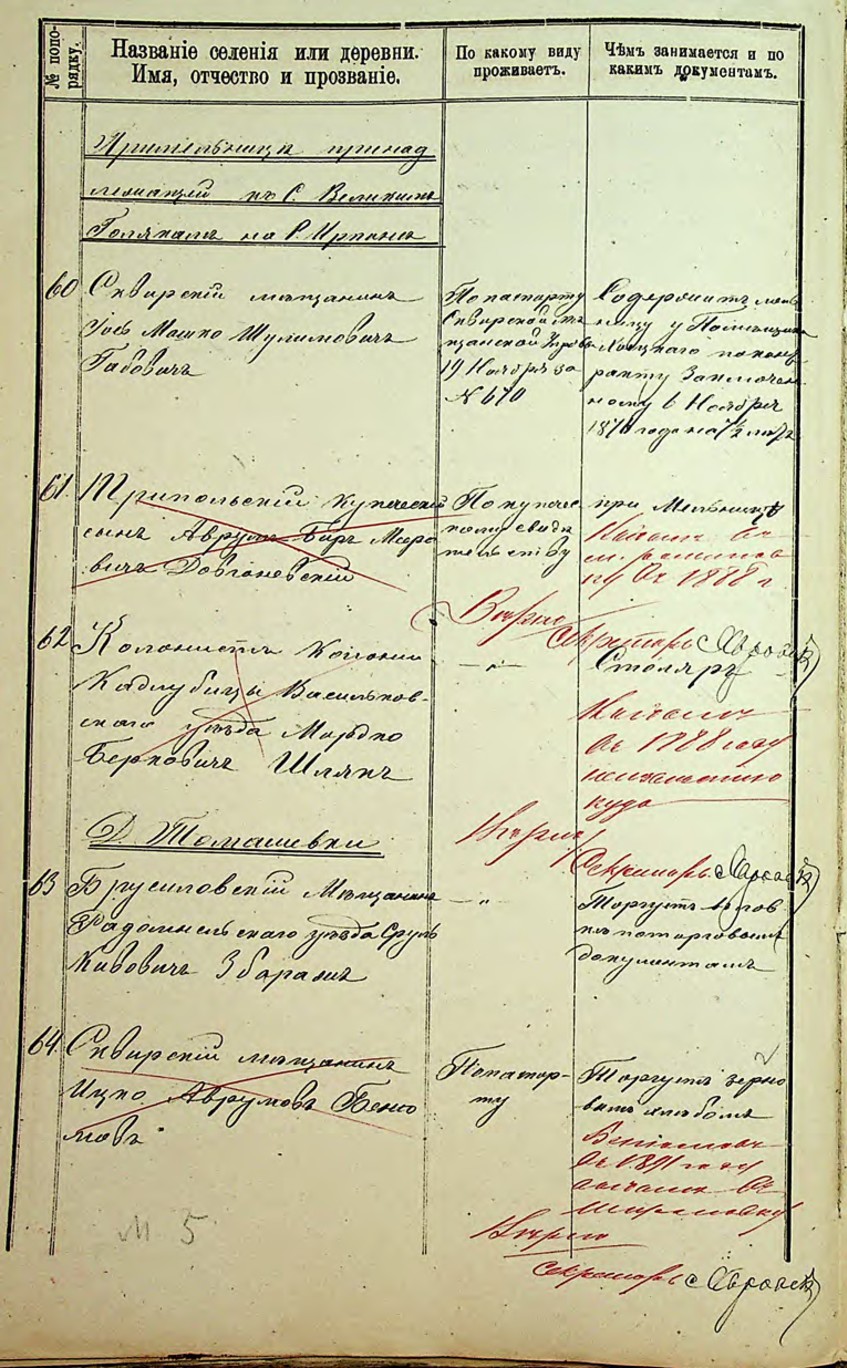 № поро-
рядку.
Названіе селенія или деревни.
Имя, отчество и прозваніе.
По какому виду
проживаетъ.
Чѣмъ занимается и по
какимъ документамъ.
принад
лежащей къ С. Великимъ
Голякамъ на Р. Ирпень
60
Сквирскій мѣщанинъ
Іось Мошко Шулимовичъ
Габовичъ
По паспорту
Сквирской мѣ
щанской Управы
19 Ноября за
№ 670
Содержитъ мель
ницу у Помѣщика
по конт
ракту Заключен
ному 6 Ноября
187 года на 7½ лѣтъ
61.
Трипольскій купеческій
сынъ Аврумъ Беръ Меро
вичъ Довгалевскій
По купечес
кому свидѣ
тельству
при Мельницѣ
въ 1888 г
Вѣрно
Секретарь
62
Колонистъ Колоніи
Кадлубицы Васильков-
скаго уѣзда Мордко
Берковичъ Шляпъ
— „ —
Столяръ
въ 1888 году
неизвѣстно
куда
Вѣрно
Секретарь
Д. Томашевки
63
Брусиловскій Мѣщанинъ
Радомысльскаго уѣзда Сруль
Кивовичъ Збаражъ
— „
Торгуетъ
по торговымъ
документамъ
64.
Сквирскій мѣщанинъ
Ицко Аврумовъ Бенюмовъ
По паспор-
ту
Торгуетъ зерно
вымъ хлѣбомъ
въ 1891 году
Вѣрно
Секретарь
М 5